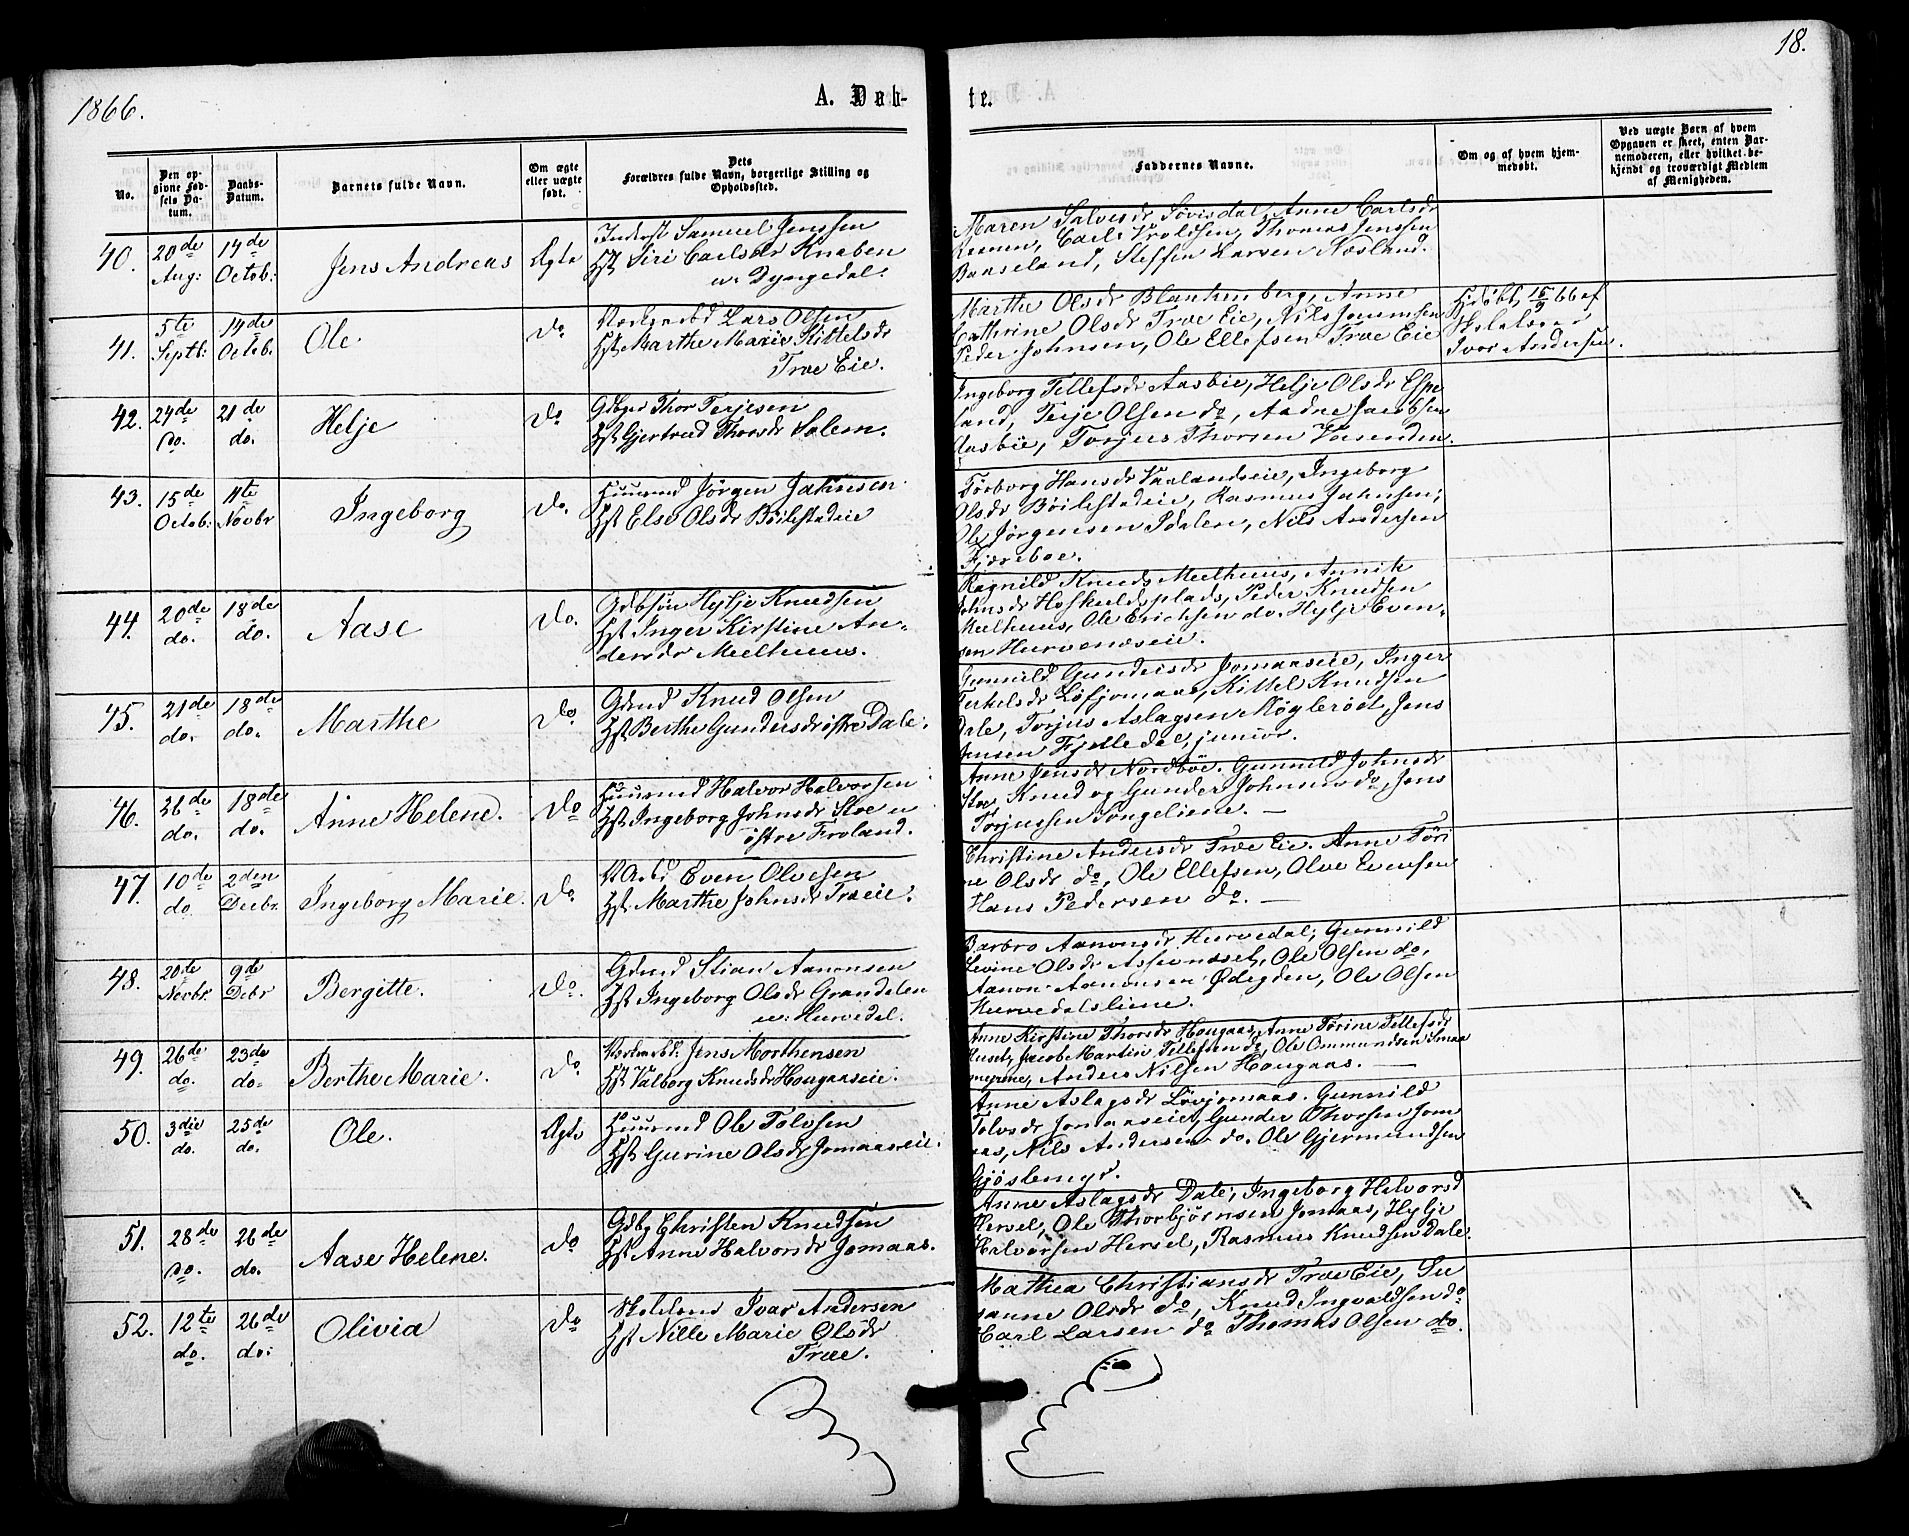 1866.
A. Døb-
te.
18.
No.
Den op-
givne Fød-
sels Da-
tum.
Daabs-
Datum.
Barnets fulde Navn.
Om ægte
eller uægte
født.
Dets
Forældres fulde Navn, borgerlige Stilling og
Opholdssted.
Faddernes Navne.
Om og af hvem hjem-
medøbt.
Ved uægte Børn af hvem
Opgaven er skeet, enten Bar-
nemoderen, eller hvilket be-
kjendt og troværdigt Medlem
af Menigheden.
40.
20de
Aug:
14de
Octob:
Jens Andreas
Ægte
Inderst Samuel Jenssen
Hst Siri Carlsdr Knaben
u. Dyngedal.
Maren Salvesdr Søvisdal, Anne Carlsdr
Carl Thomas Jenssen
Baaseland, Steffen Larsen Næsland.
41.
5te
Septb:
14de
Octob.
Ole
do
Lars Olsen
Hst Marthe Marie Kittelsdr
Træ Eie.
Marthe Olsdr Blankenberg, Anne
Cathrine Olsdr Træ Eie, Nils
Peder Johnsen, Ole Ellefsen Træ Eie
Hjdøbt 15/9 66 af
Ivar Andersen.
42.
24de
do.
21de
do.
Helje
do
Gdbgr Thor Terjesen
Hst Gjertrud Thorsdr Salem.
Ingeborg Tellefsdr Aasbie, Helje Olsdr Espe
land, Terje Olsen do, Aadne Jacobsen
Aasbie, Torjus Thorsen Vaarenden.
43.
15de
Octob:
11te
Novbr
Ingeborg
do.
Huusmd Jørgen Jahnsen
Hst Else Olsdr Böilestadeie
Torborg Hansdr Vaalandseie, Ingeborg
Olsdr Böilestadeie, Rasmus Jahnsen,
Ole Jørgensen Nils Andersen
Fjæreboe.
44.
20de
do.
18de
do.
Aase
do.
Gdbsøn Hylje Knudsen
Hst Inger Kirstine An-
dersdr Mælhuus.
Ragnild Knudsdr Mælhuus, Annik
Johnsdr Heskulds plads, Peder Knudsen
Mælhuus, Ole Erichsen do. Hylje Even-
sen Hurvenæseie.
45.
21de
do.
18de
do.
Marthe
do
Gdmd Knud Olsen
Hst Berthe Gundersdr østre Dale.
Gunnild Gundersdr Jomaaseie, Inger
Terkelsdr Løfjomaas, Kittel Knudsen
Dale, Torjus Aslagsen Møglerøst, Jens
Jensen Fjelledal, junior.
46.
26de
do.
18de
do.
Anne Helene.
do
Huusmd Halvor Halvorsen
Hst Ingeborg Johnsdr Stoe u
østre Froland.
Anne Jensdr Nordbøe. Gunnild Johnsdr
Stoe, Knud og Gunder Johnsens do, Jens
Torjussen Songeliene. —
47.
10de
do
2den
Decbr.
Ingeborg Marie.
do
Even Olvesen
Hst Marthe Johnsdr Træeie.
Christine Andersdr Træ Eie. Anne Tøri
ne Olsdr do, Ole Ellefsen, Olve Evensen
Hans Pedersen do. —
48.
20de
Novbr.
9de
Debr
Bergitte.
do.
Gdmd Stian Aanonsen
Hst Ingeborg Olsdr Grandalen
u: Hurvedal.
Barbro Aanonsdr Hurvedal, Gunnild
Levine Olsdr Assevasset, Ole Olsen do.
Aanon Aanonsen Ødegden, Ole Olsen
Hurvedalsliene.
49.
26de
do.
23de
do.
Berthe Marie.
do
Jens Morthensen
Hst Valborg Knudsdr Hougaaseie.
Anne Kirstine Thorsdr Hougaas, Anne Tørine Tellefsdr
Huset, Jacob Martin Tellefsen do, Ole Ommundsen Smaa
myrene, Anders Nilsen Hougaas. —
50.
3die
do.
25de
do.
Ole.
Ægte
Huusmd Ole Tolvsen
Hst Gurine Olsdr Jomaaseie.
Anne Aslagsdr Løvjomaas. Gunnild
Tolvsdr Jomaaseie, Gunder Thorsen Jom
aas, Nils Andersen do. Ole Gjermundsen
Gjøslemyr.
51.
28de
do.
26de
do.
Aase Helene.
do
Gdbg Christen Knudsen
Hst Anne Halvorsdr Jomaas.
Anne Aslagsdr Dale, Ingeborg Halvorsd
Hersel, Ole Thorbjørnsen Jomaas, Hylje
Halvorsen Hersel, Rasmus Knudsen Dale.
52.
12te
do.
26de
do.
Olivia
do
Ivar Andersen
Hst Nille Marie Olsdr
Træe.
Mathea Christiansdr Træ Eie, Su
sanne Olsdr do, Knud Ingvaldsen do
Carl Larsen do Thomas Olsen do.